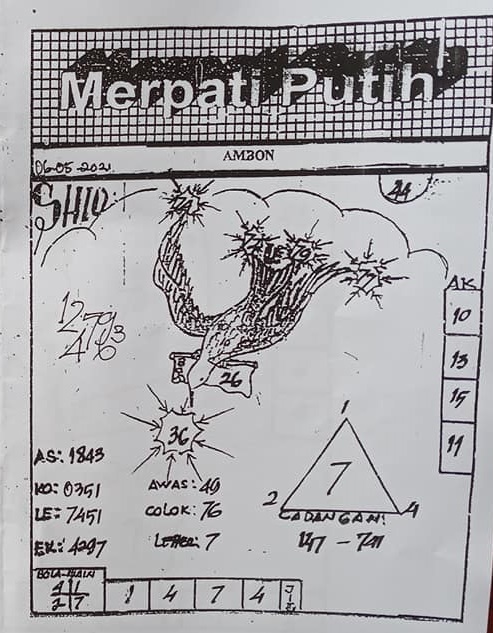 Merpati Putih
AMBON
06-05-2021
SHIO
44
74
79
77
12
479
3
46
26
36
AK
10
13
15
11
1
7
2
4
AS: 1843
KO: 0351
LE: 7451
EK: 4297
AWAS: 49
COLOK: 76
LETTER: 7
CADANGAN:
147 - 741
BOLA-MAIN
4 1
2 7
1 4 7 4